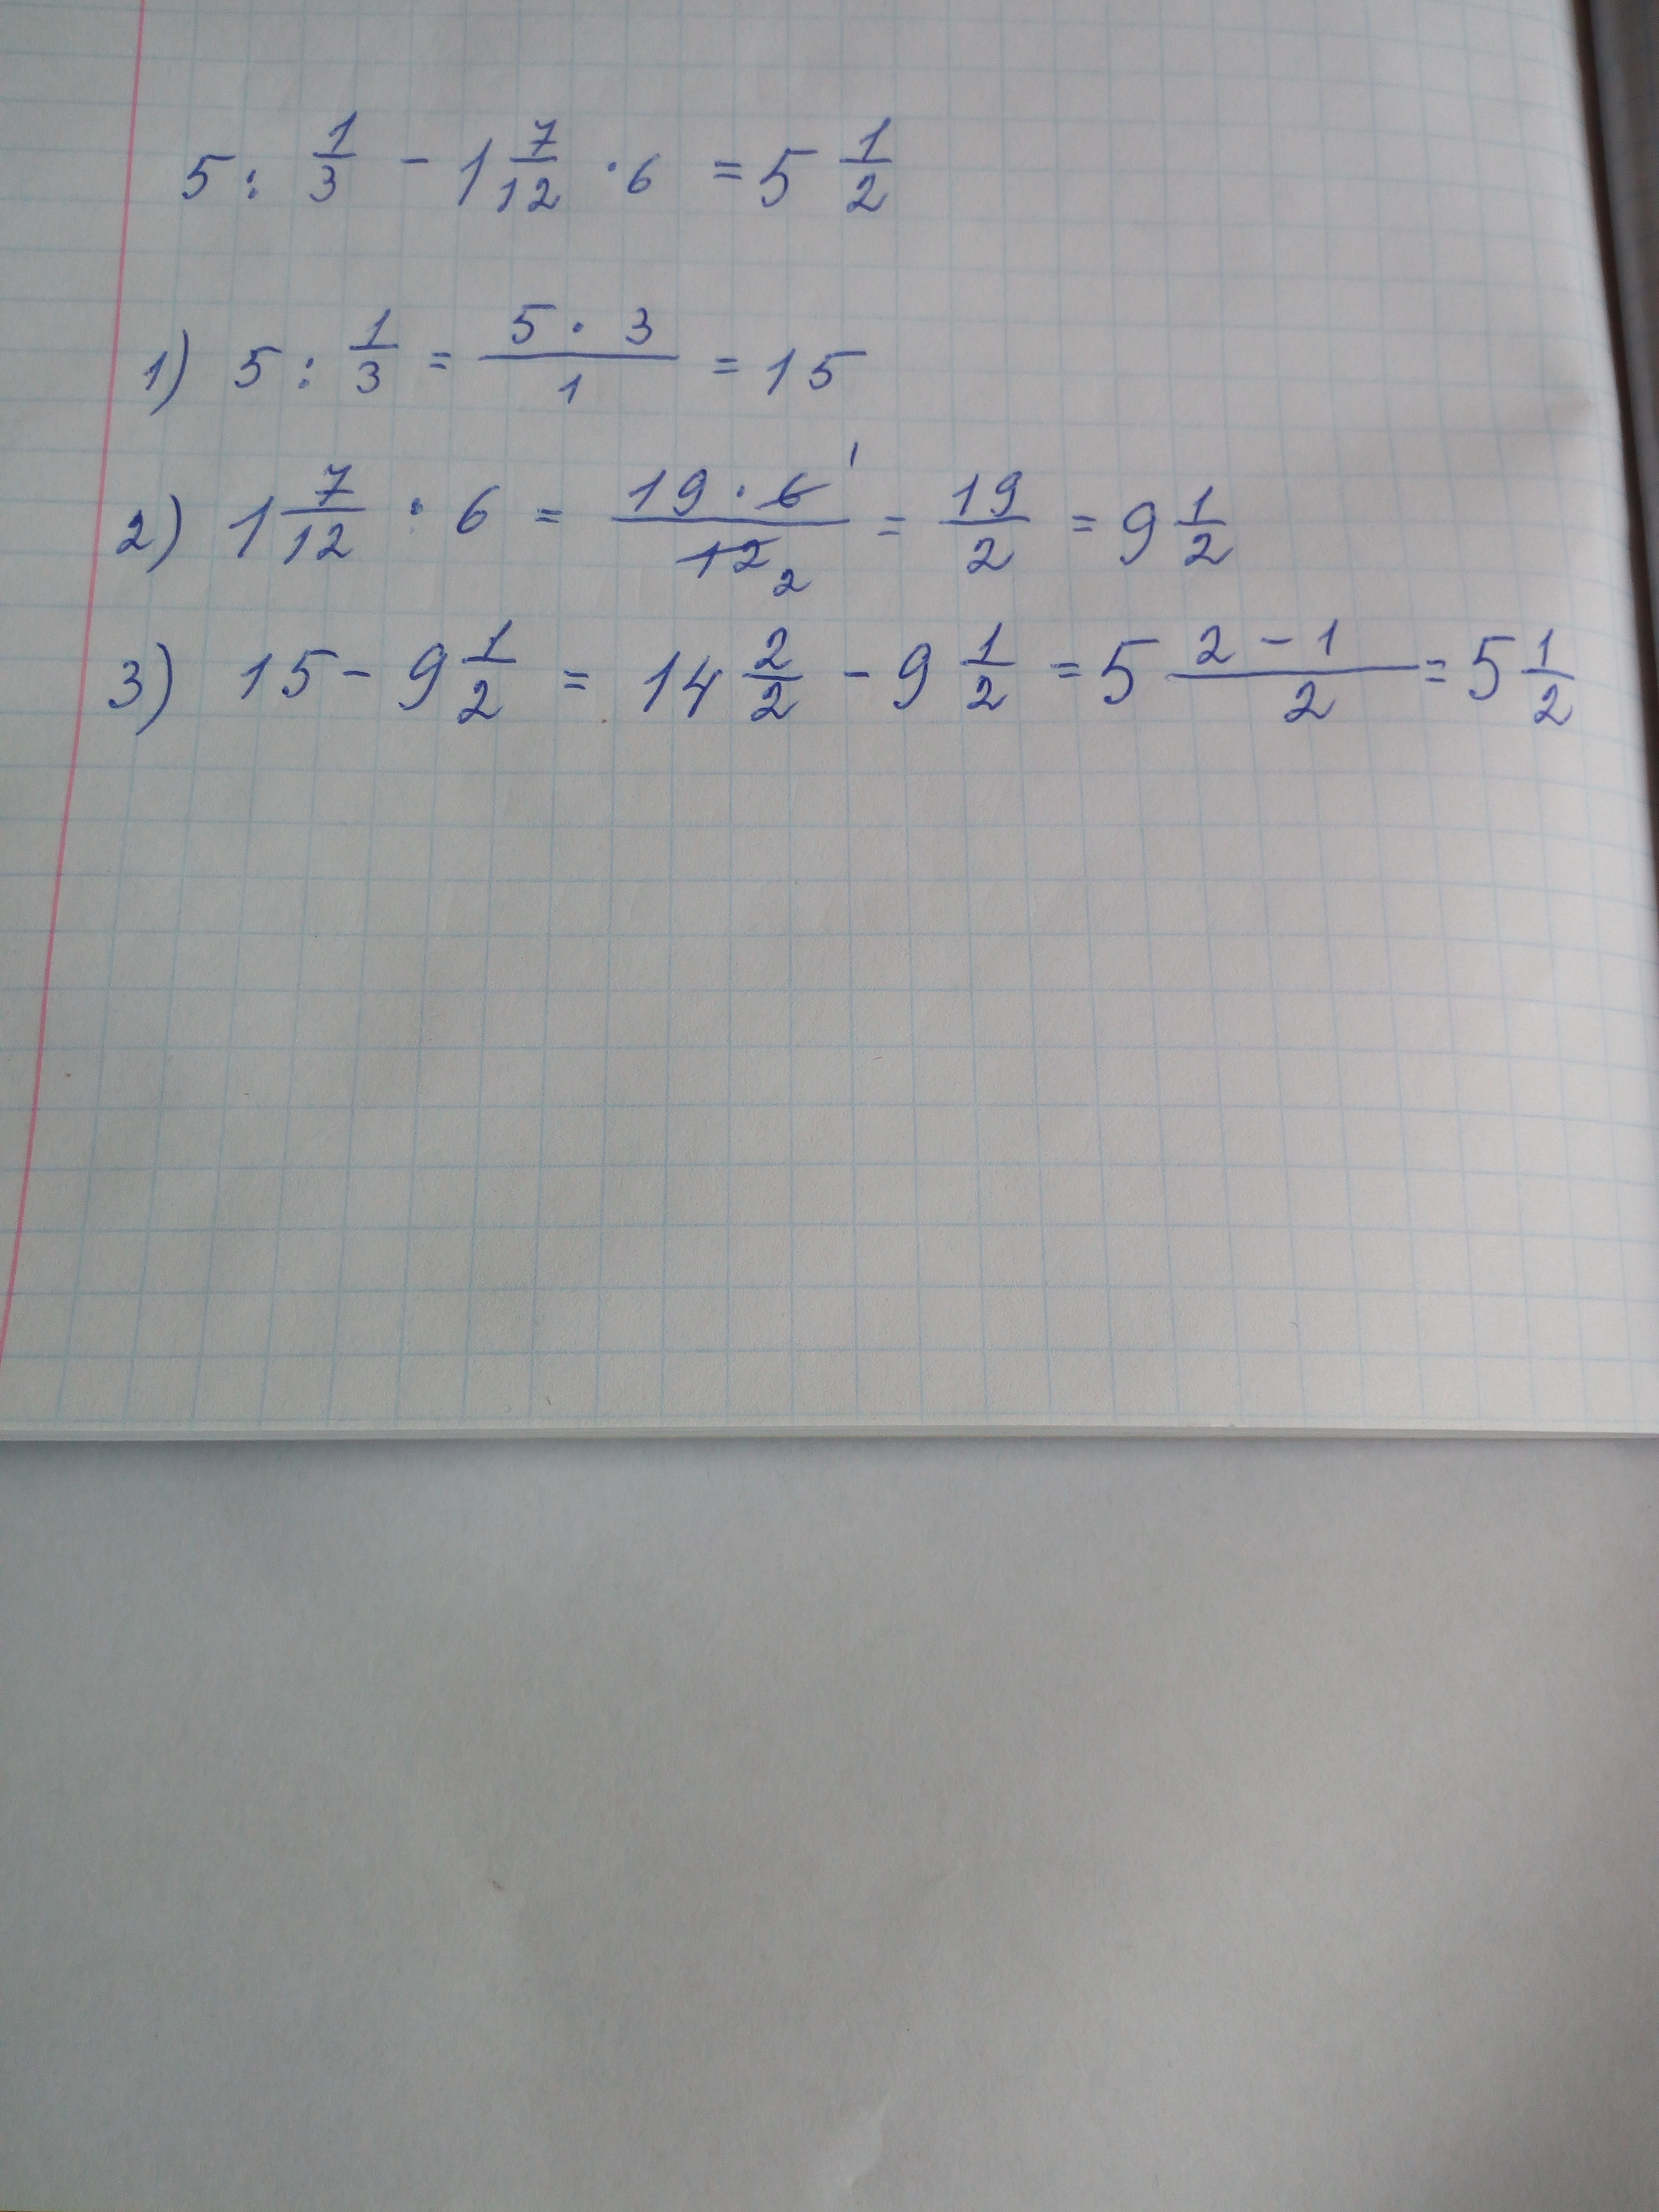 5 : 1/3 - 1 7/12 · 6 = 5 1/2
1) 5 : 1/3 = 5 · 3/1 = 15
2) 1 7/12 · 6 = 19 · 6 1/12 2 = 19/2 = 9 1/2
3) 15 - 9 1/2 = 14 2/2 - 9 1/2 = 5 2 - 1/2 = 5 1/2